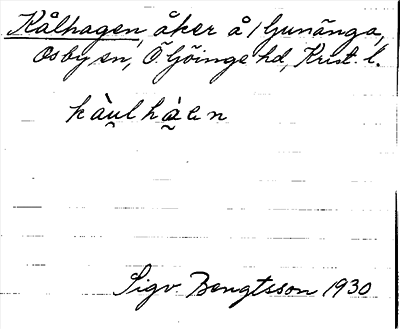 Kålhagen, åker å Ljunänga,
Osby sn, Ö Göinge hd, Krist. l.
kàu̯lhà̰en
Sigv. Bengtsson 1930